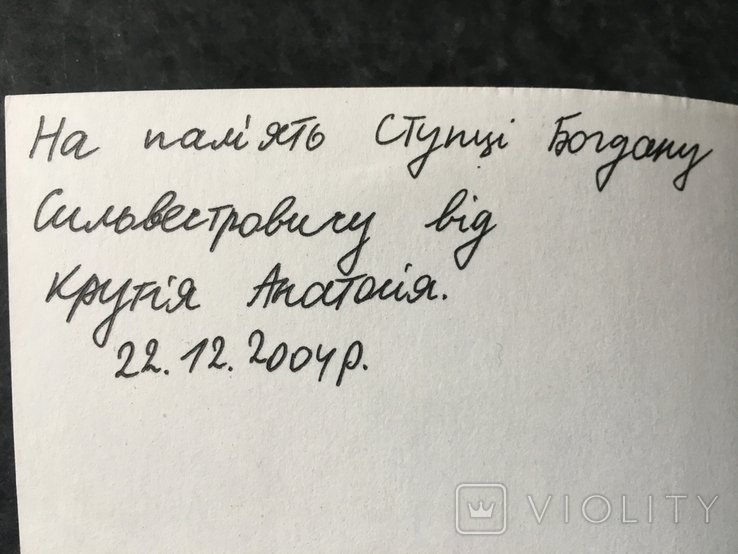 На пам'ять Ступці Богдану
Сильвестровичу від
Крутія Анатолія.
22.12.2004р.
VIOLITY